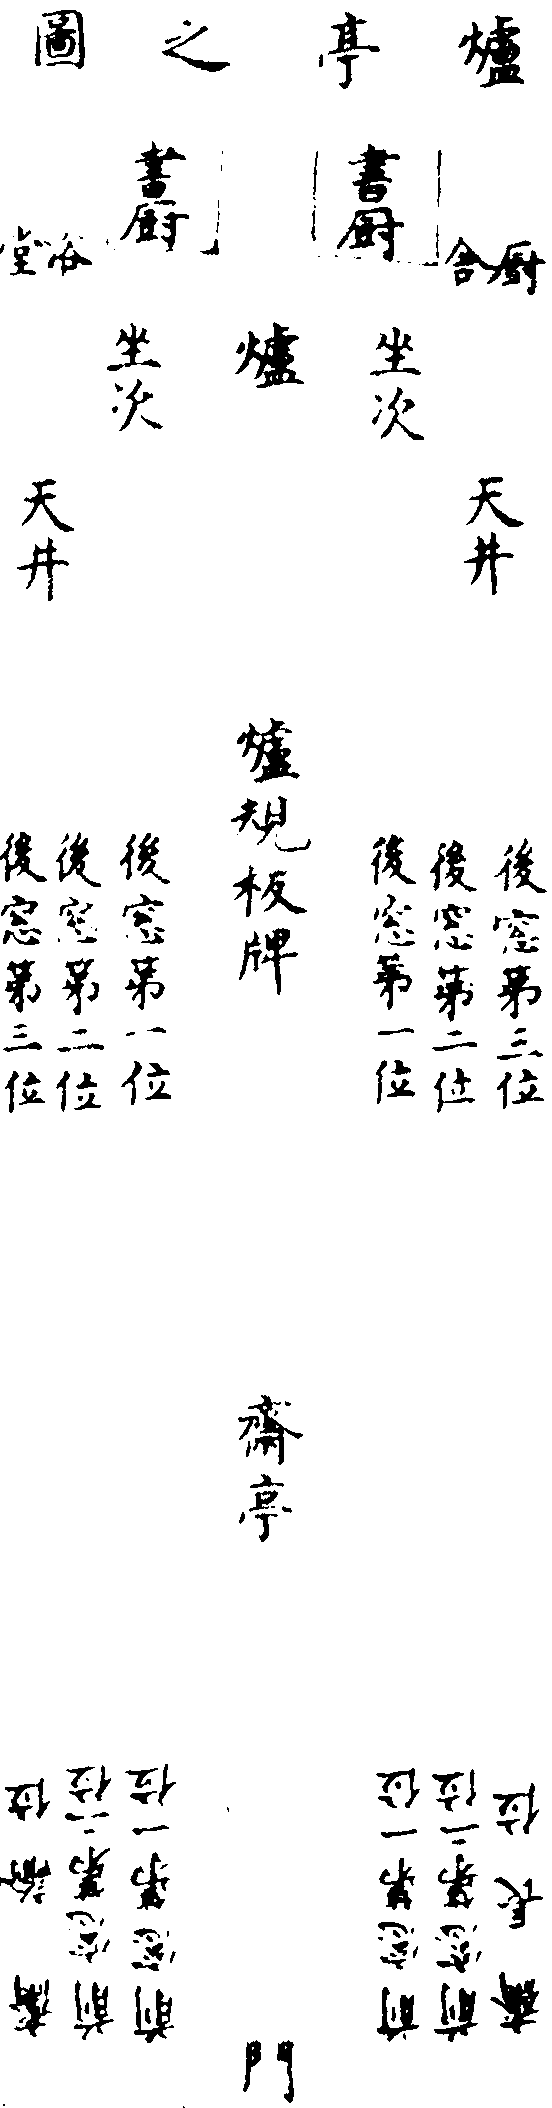 爐亭之圖
書厨
書厨
厨舎
浴堂
坐次
爐
坐次
天井
天井
爐規板牌
後窓第三位
後窓第二位
後窓第一位
後窓第一位
後窓第二位
後窓第三位
齋亭
齋長位
前窓第二位
前窓第一位
前窓第一位
前窓第二位
齋諭位
門